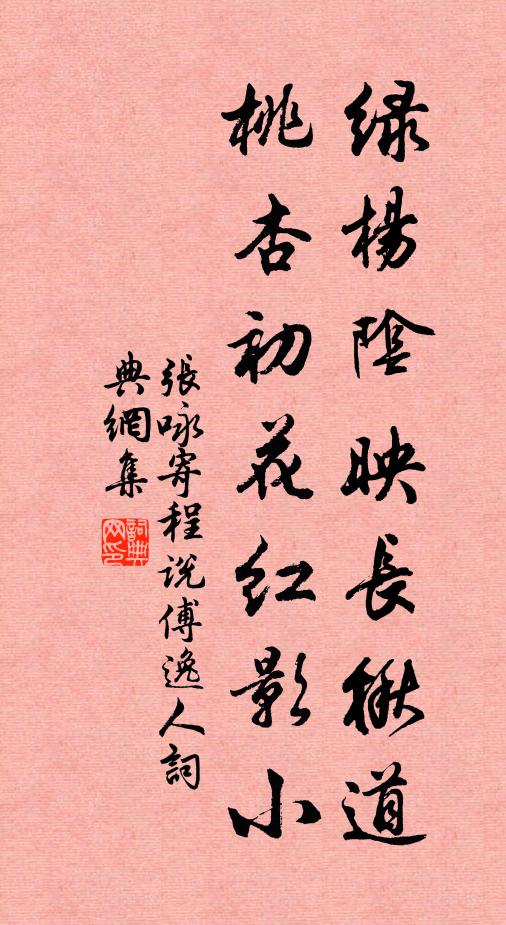 綠楊陰映長楸道
桃杏初花紅影小
張咏寄程説傅逸人詞
典網集
詞典網印